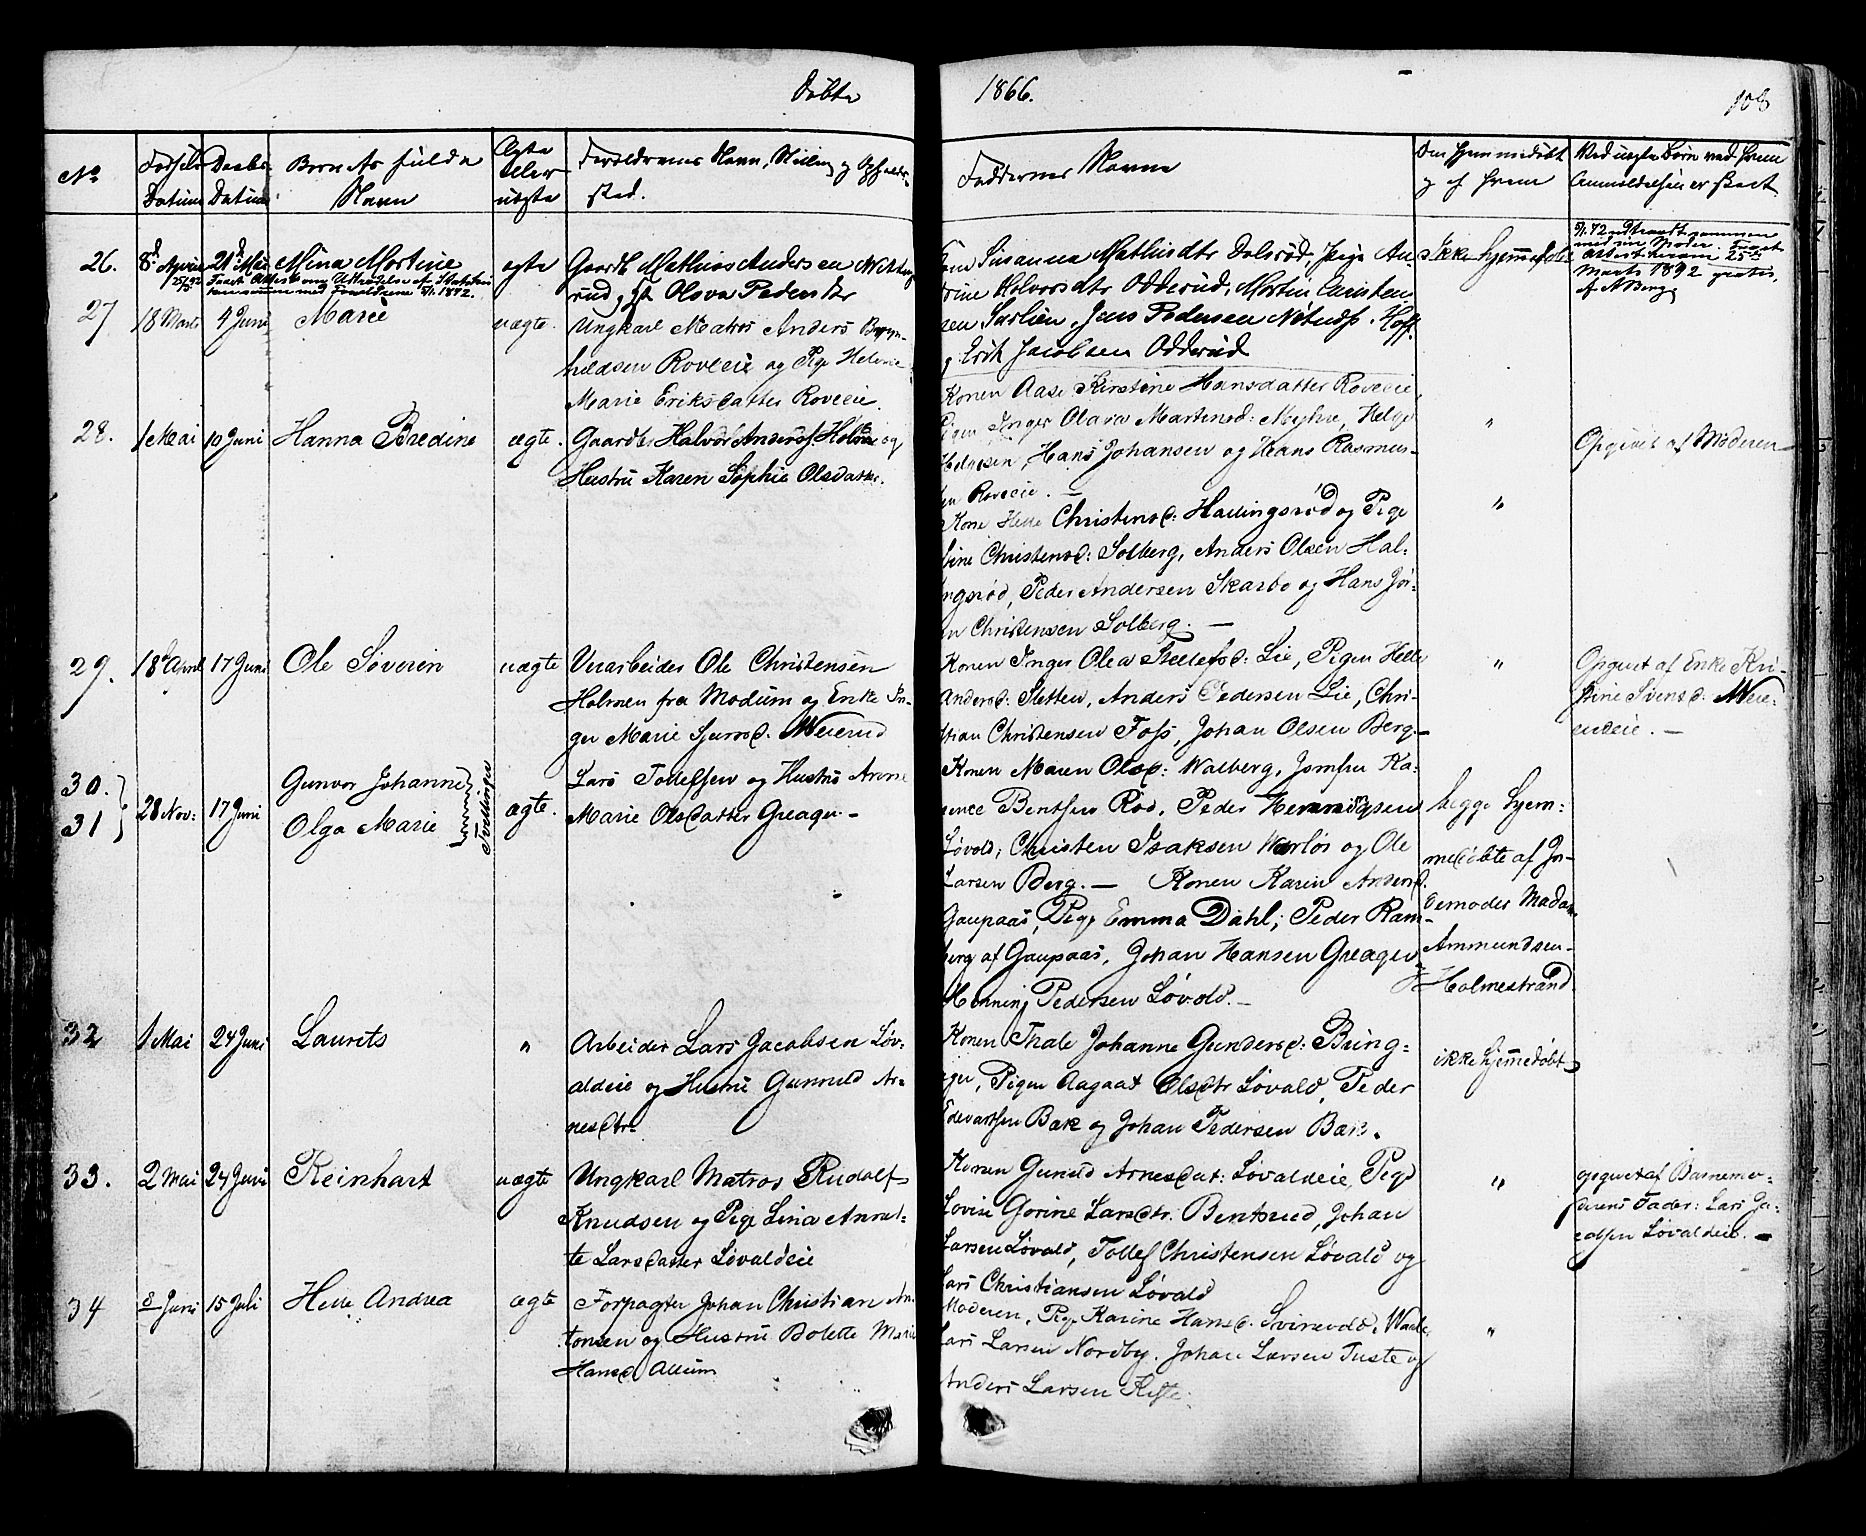 Døbte
1866.
No
Fødsels Datum
Daabs Datum
Barnets fulde Navn
Ægte eller uægte
Forældrenes Navn, Stilling og Opholds-
sted.
Faddernes Navne
Om hjemmedøbt
og af hvem
Ved uægte Børn ved hvem
Anmeldelsen er skeet
26. 8de April 21de Mai Mina Mortine ægte Gaardb. Mathias Andersen
og H. Olava Pedersdtr
Susanna Mathiasdtr Dalsrød, Pige An-
drine Halvorsdtr Odderud, Martin Christen-
sen Sørlien, Jens Pedersen
Erik Jacobsen Odderud
ikke hjemmedøbt
5/1.92 udtraadt sammen
med sin Moder. Taget
Attest herom 25de
Marts 1892 gratis.
af A Berg
27 18 Marts 4 Juni Marie uægte. Ungkarl Matros Anders Bryn-
hildsen Roveeie og Pige Helene
Marie Eriksdatter Roveeie.
Konen Aase Kirstine Hansdatter Roveeie,
Pigen Inger Olava Martinsd: Myhre, Helge
Helgesen, Hans Johansen og Hans Rasmus-
sen Roveeie. —
"
Opgivet af Moderen
28. 1 Mai 10 Juni Hanna Bredine ægte. Gaardbr Halvor Anderss. Holme og
Hustru Karen Sophie Olsdatter.
Kone Helle Christensd: Hallingsrød og Pige
Christensd: Solberg, Anders Olsen Hal-
ingsrød, Peder Andersen Skarbo og Hans Jør-
gen Christensen Solberg. —
"
29. 18de April 17 Juni Ole Søverin uægte Veiarbeider Ole Christensen
Holmen fra Modum og Enke In-
ger Marie Sjursd. Weierud
Konen Inger Olea Stellefsd: Lie, Pigen Helle
Andersd: Sletten, Anders Pedersen Lie, Chri-
stian Christensen Foss, Johan Olsen Berg —
"
Opgivet af Enke Kri-
stine Svensd: Weie-
rudeie. —
30.
31 28 Nov: 17 Juni Gunvor Johanne
Olga Marie
Tvillinger
ægte. Lars Tollefsen og Hustru Anne
Marie Olsdatter Greager. —
Konen Maren Olsd: Walberg, Jomfru Ka-
rence Bentsen Rød, Peder Henningsen
Løvald, Christen Isaksen Warløs og Ole
Larsen Berg. — Konen Karen Andersd.
Gaupaas, Pige Emma Dahl, Peder Ram-
berg af Gaupaas, Johan Hansen Greager
Henning Pedersen Løvald. —
begge hjem-
medøbte af Jor-
demoder Madam
Ammundsen
Holmestrand.
32 1 Mai 24 Juni Laurits " Arbeider Lars Jacobsen Løv-
aldeie og Hustru Gunnild Ar-
nesdtr.
Konen Thale Johanne Gundersd: Bring-
ager, Pigen Aagaat Olsdtr Løvald, Peder
Edvartsen Bak og Johan Pedersen Bak.
ikke hjemmedøbt
33. 2 Mai 24 Juni Reinhart uægte Ungkarl Matros Rudolf
Knudsen og Pige Lina Annet-
te Larsdatter Løvaldeie
Konen Gunild Arnesdat: Løvaldeie, Pige
Lovise Gorine Larsdtr. Bentsrud, Johan
Larsen Løvald, Tollef Christensen Løvald og
Lars Christiansen Løvald
"
opgivet af Barnemo-
derens Fader: Lars Ja-
cobsen Løvaldeie. —
34 8 Juni 15 Juli Helle Andrea ægte Forpagter Johan Christian An-
tonsen og Hustru Bolette Marie
Hansd Allum
Moderen, Pige Karine Hansd. Svinevold,
Lars Larsen Nordby. Johan Larsen Tuste og
Anders Larsen
"